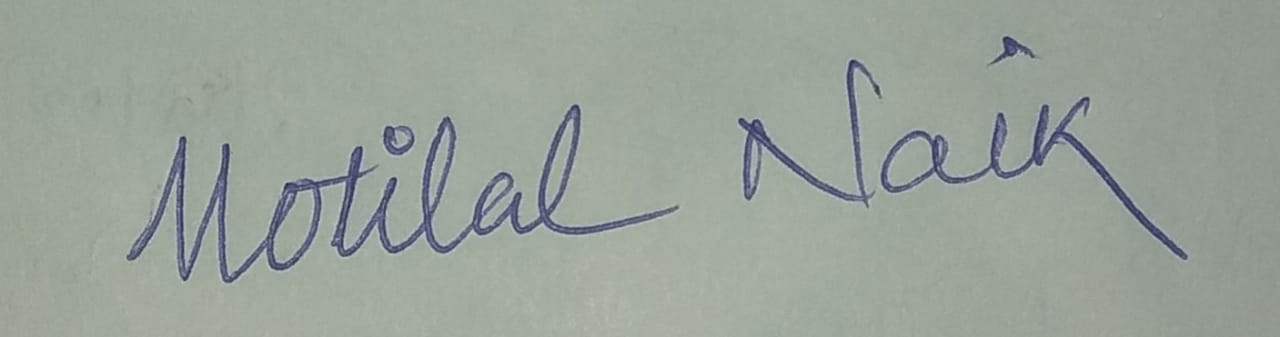 Motilal Naik